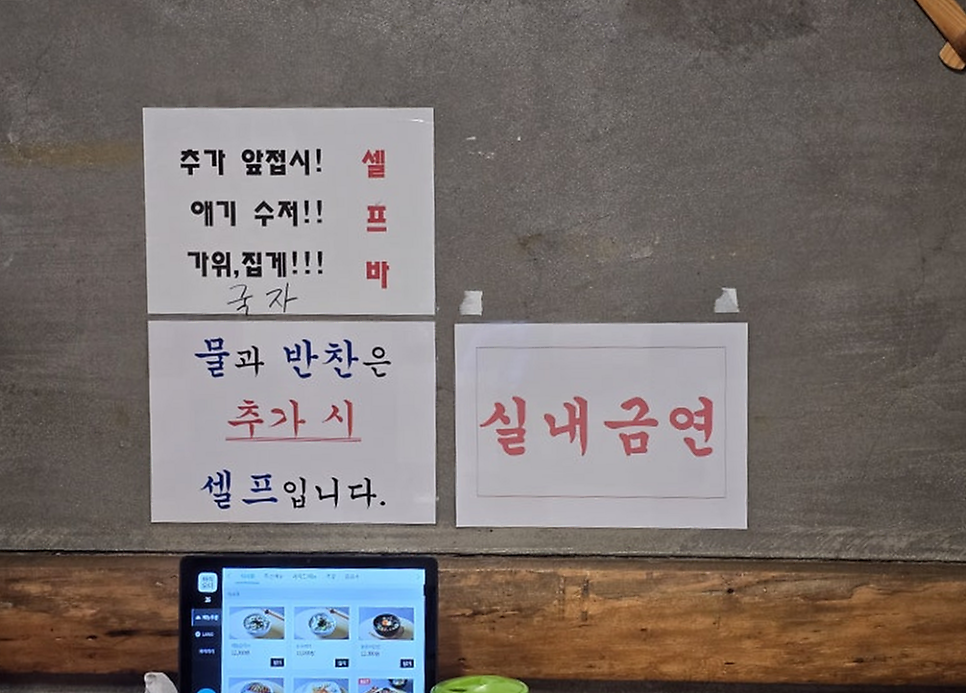 추가 앞접시!
애기 수저!!
가위,집게!!!
국자
셀
프
바
물과 반찬은
추가 시
셀프입니다.
실내금연